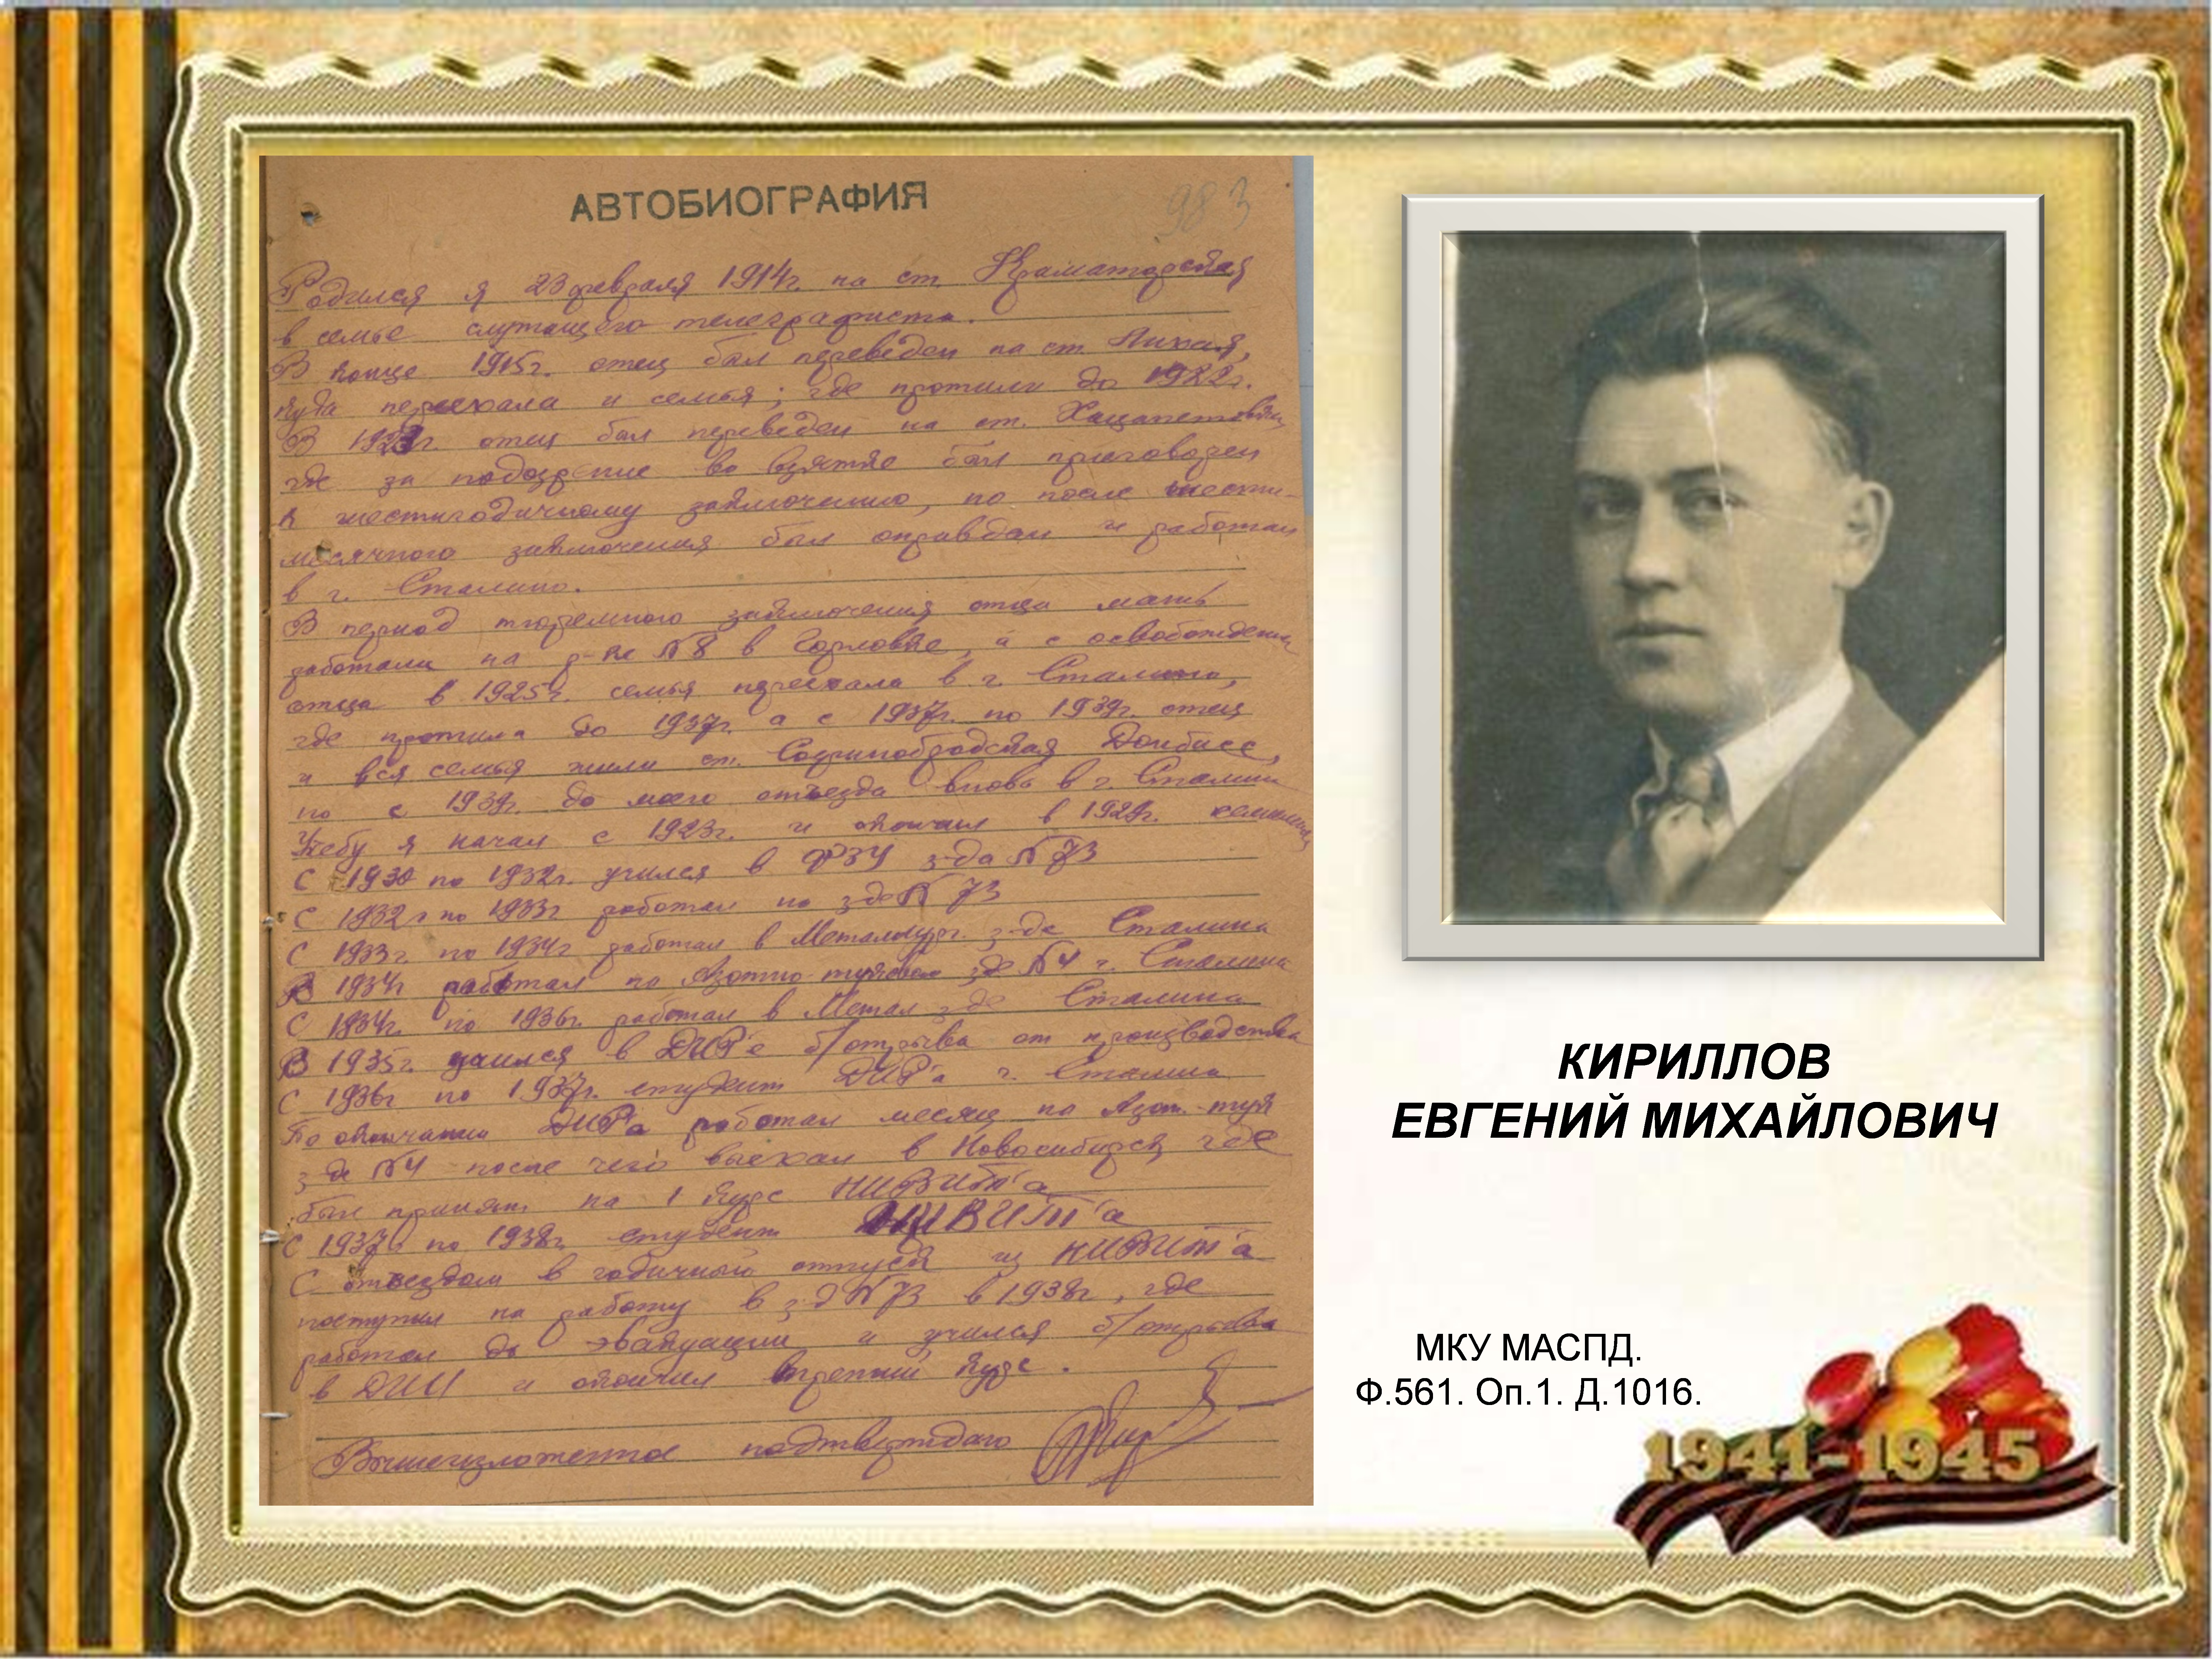 АВТОБИОГРАФИЯ
983
Родился я 23 февраля 1914г. на ст. Краматорская
в семье служащего телеграфиста.
В конце 1915г. отец был переведен на ст. Лихая,
куда переехала и семья; где прожили до 1922г.
В 1923г. отец был переведен на ст. Хацапетовка
где за подозрение во взятке был приговорен
к шестигодичному заключению, но после шести-
месячного заключения был оправдан и работал
в г. Сталино.
В период тюремного заключения отца мать
работала на р-ке №8 в Горловке, а с освобождения
отца в 1925г. семья переехала в г. Сталино,
где прожила до 1937г. а с 1937г. по 1939г. отец
и вся семья жили ст. Софинобродская Донбасс,
но с 1939г. до моего отъезда вновь в г. Сталин
Учебу я начал с 1923г. и окончил в 1929г.
С 1930 по 1932г. учился в ФЗУ з-да №73
С 1932г по 1933г работал на з-де №73
С 1933г. по 1934г работал в Металлург. з-де Сталина
В 1934г работал на Азотно-туковом з-де №4 г. Сталина
С 1934г. по 1936г. работал в Метал з-де Сталина
В 1935г. учился в ДИР'е б/отрыва от производства
С 1936г по 1937г. студент ДИР'а г. Сталина
По окончании ДИР'а работал месяц на Азот.-тук
з-де №4 после чего выехал в Новосибирск где
был принят на 1 курс НИВИТ'а
С 1937г по 1938г. студент НИВИТ'а
С отъездом в годичный отпуск из НИВИТ'а
поступил на работу в з-д №73 в 1938г, где
работал до эвакуации и учился б/отрыва
в ДИИ и окончил третий курс.
Вышеизложенное подтверждаю
КИРИЛЛОВ
ЕВГЕНИЙ МИХАЙЛОВИЧ
МКУ МАСПД.
Ф.561. Оп.1. Д.1016.
1941-1945